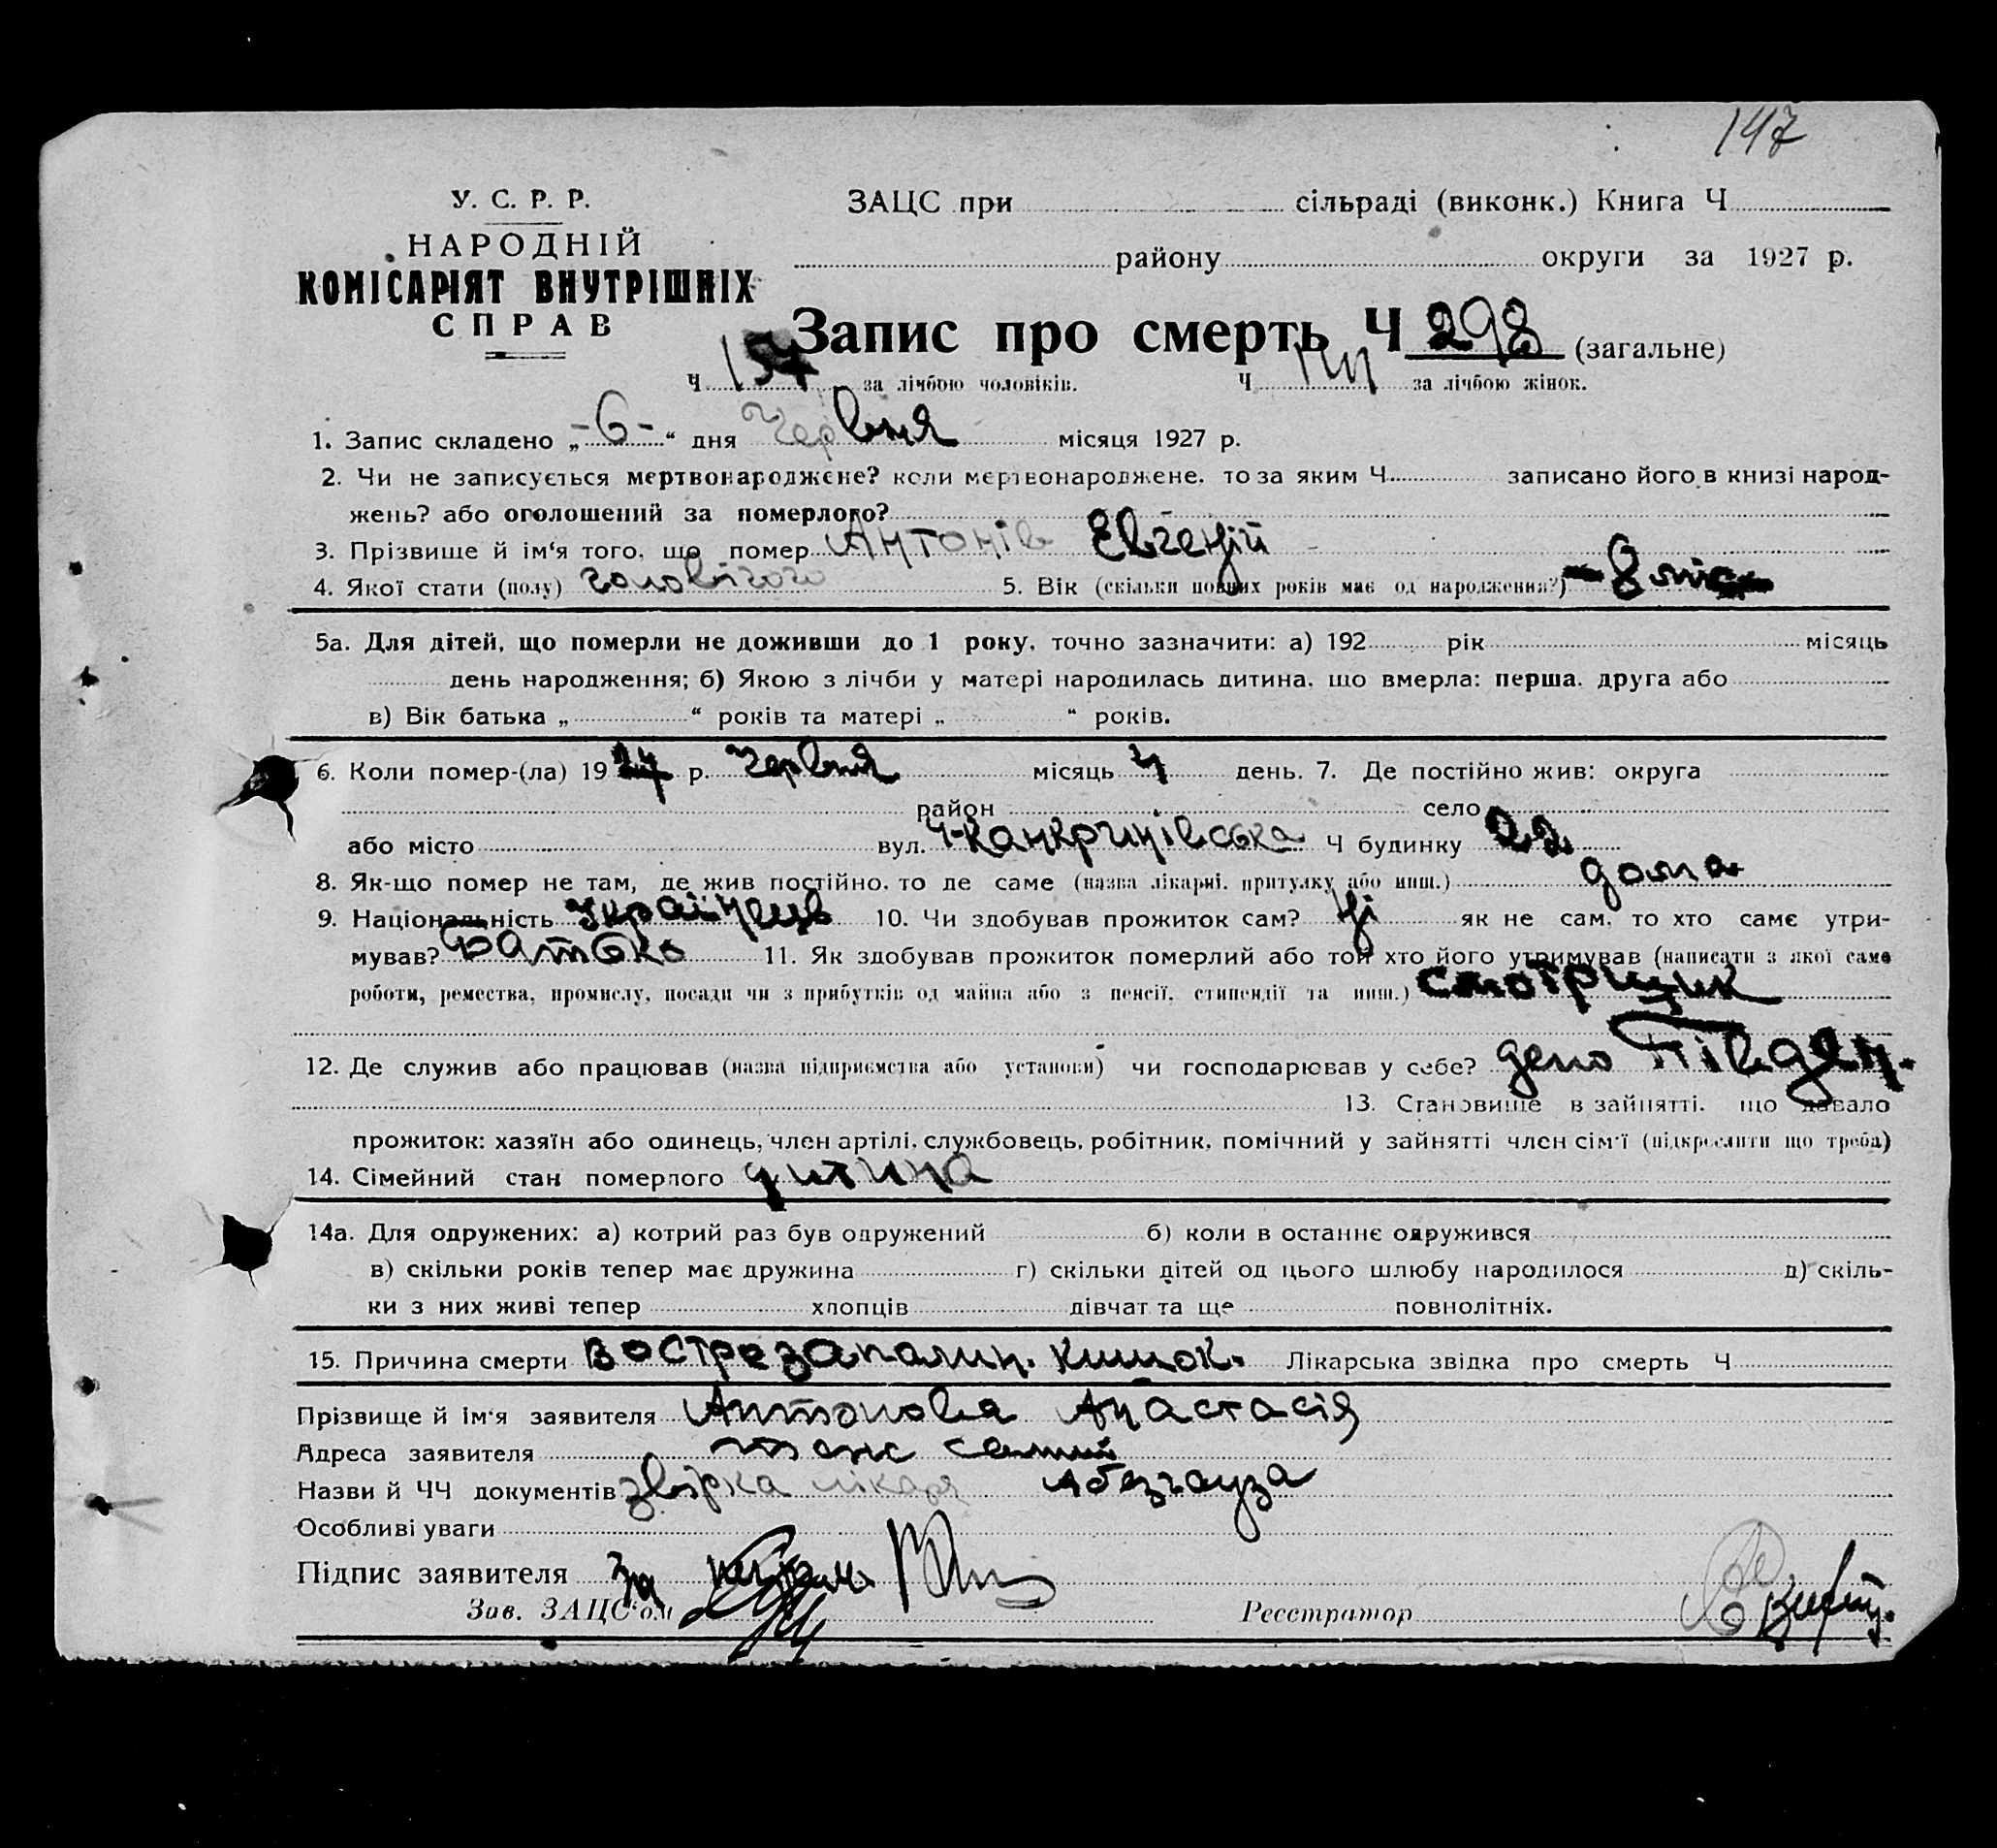 147
У. С. Р. Р.
НАРОДНІЙ
КОМІСАРІЯТ ВНУТРІШНІХ
СПРАВ
ЗАЦС при сільраді (виконк.) Книга Ч
району округи за 1927 р.
Запис про смерть Ч 298 (загальне)
Ч 157 за лічбою чоловіків. Ч 141 за лічбою жінок.
1. Запис складено „ -6- “ дня Червня місяця 1927 р.
2. Чи не записується мертвонароджене? коли мертвонароджене, то за яким Ч записано його в книзі народ-
жень? або оголошений за померлого?
3. Прізвище й ім‘я того, що помер Антонів Евгеній
4. Якої стати (полу) чоловічого 5. Вік (скільки повних років має од народження?) 8 міс
5а. Для дітей, що померли не доживши до 1 року, точно зазначити: а) 192 рік місяць
день народження; б) Якою з лічби у матері народилась дитина, що вмерла: перша, друга або
в) Вік батька „ “ років та матері „ “ років.
6. Коли помер-(ла) 1927 р. Червня місяць 4 день. 7. Де постійно жив: округа
район село
або місто вул. Ч-Канкринівська Ч будинку 22
8. Як-що помер не там, де жив постійно, то де саме (назва лікарні, притулку або инш.) дома
9. Національність Українець 10. Чи здобував прожиток сам? Ні як не сам, то хто саме утри-
мував? Батько 11. Як здобував прожиток померлий або той хто його утримував (написати з якої саме
роботи, ремества, промислу, посади чи з прибутків од майна або з пенсії, стипендії та инш.) смотрщик
12. Де служив або працював (назва підприємства або установи) чи господарював у себе? депо Півден.
13. Становище в зайнятті, що давало
прожиток: хазяїн або одинець, член артілі, службовець, робітник, помічний у зайнятті член сім‘ї (підкреслити що треба)
14. Сімейний стан померлого дитина
14а. Для одружених: а) котрий раз був одружений б) коли в останнє одружився
в) скільки років тепер має дружина г) скільки дітей од цього шлюбу народилося д) скіль-
ки з них живі тепер хлопців дівчат та ще повнолітніх.
15. Причина смерти востре запалин. кишок. Лікарська звідка про смерть Ч
Прізвище й ім‘я заявителя Антонова Анастасія
Адреса заявителя
Назви й ЧЧ документів звірка лікаря Абезгауза
Особливі уваги
Підпис заявителя За
Зав. ЗАЦС‘ом Реєстратор